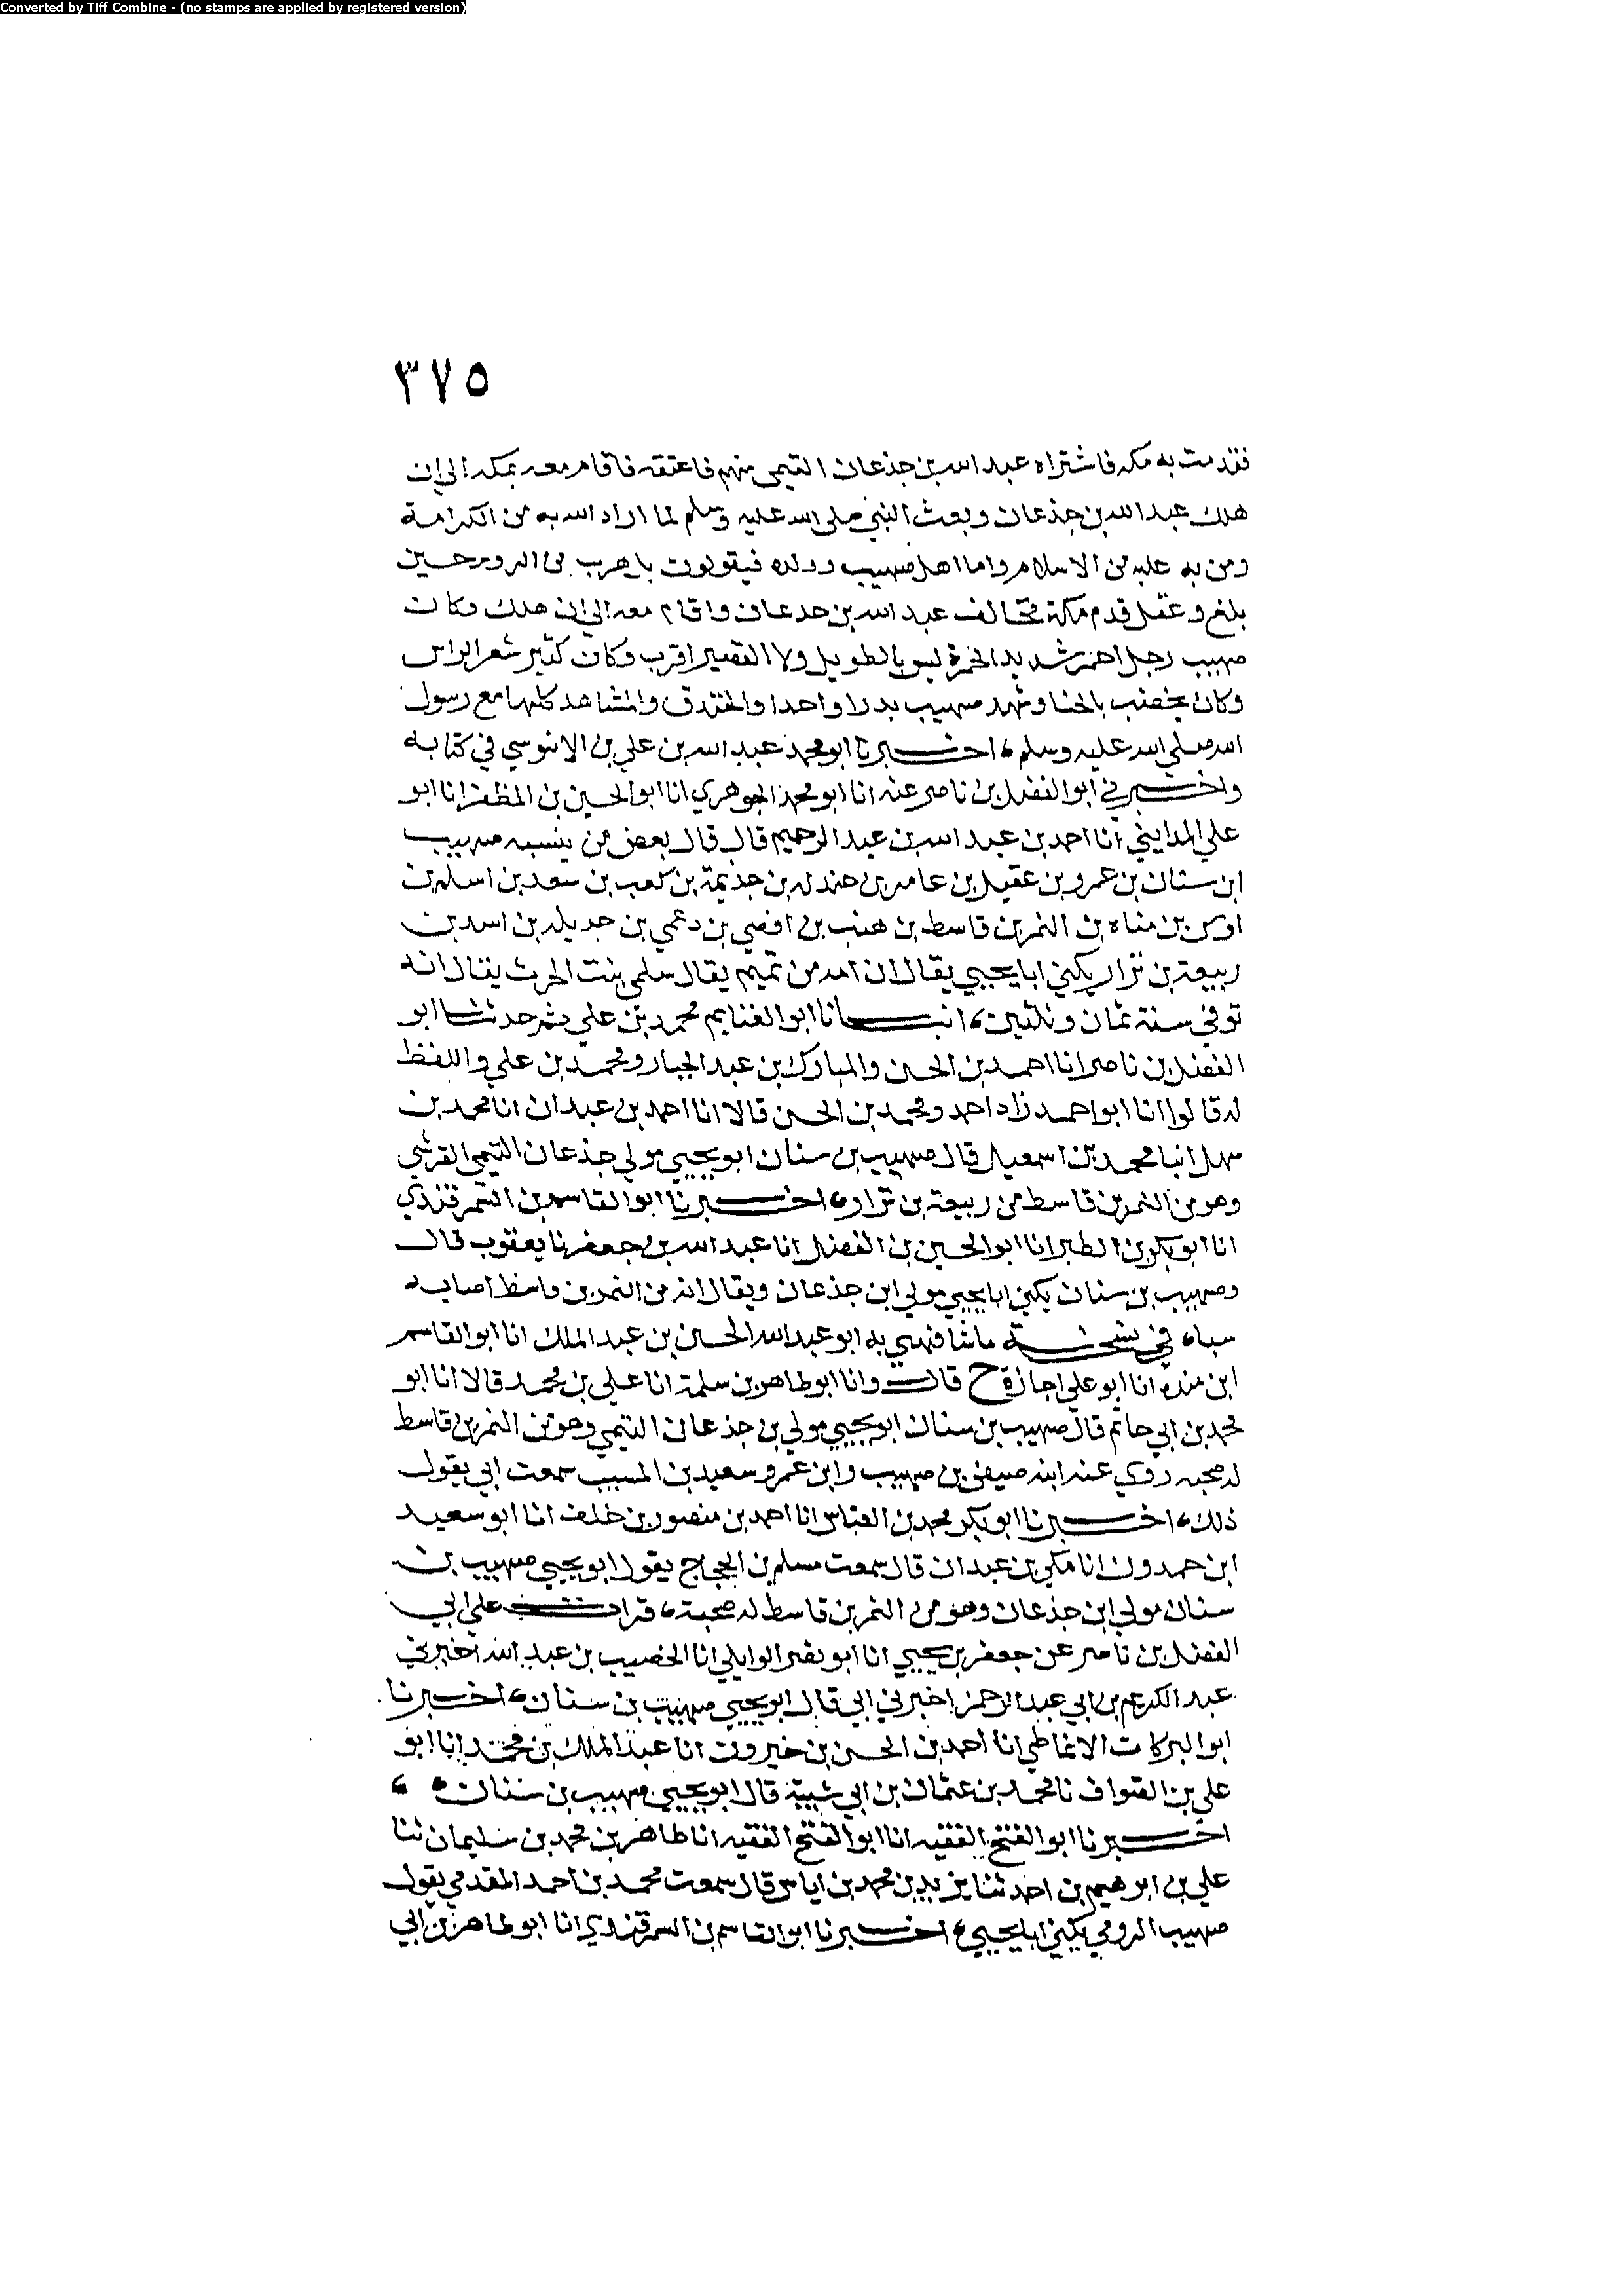 Converted by Tiff Combine - (no stamps are applied by registered version)
٣٧٥
فقدمت به مكه فاشتراه عبد الله بن جذعان التيمي منهم فاعتقه فاقام معه بمكه الي ان
هلك عبد الله بن جذعان وبعث النبي صلى الله عليه وسلم لما اراد الله به من الكرامة
ومن به عليه من الاسلام واما اهل صهيب وولده فيقولون بل هرب من الروم حين
بلغ وعقل قدم مكة فحالف عبد الله بن جدعان واقام معه الي ان هلك وكان
صهيب رجل احمر شديد الحمرة ليس بالطويل ولا القصير اقرب وكان كثير شعر الراس
وكان يخضب بالحنا وشهد صهيب بدرا واحدا والخندق والمشاهد كلها مع رسول
الله صلي الله عليه وسلم، اخبرنا ابو محمد عبد الله بن علي بن الابنوسي في كتابه
واخبرني ابو الفضل بن ناصر عنه انا ابو محمد الجوهري انا ابو الحسين بن المظفر انا ابو
علي المدايني انا احمد بن عبد الله بن عبد الرحيم قال قال بعض من ينسبه صهيب
ابن سنان بن عمرو بن عقيل بن عامر بن جندله بن جذيمة بن كعب بن سعد بن اسلم بن
اوس بن مناه بن النمر بن قاسط بن هنب بن افصي بن دعمي بن جديله بن اسد بن
ربيعة بن نزار يكني ابا يحيي يقال ان امه من تميم يقال سلمي بنت الحرث يقال انه
توفي سنة ثمان وثلثين، انبانا ابو الغنايم محمد بن علي ثم حدثنا ابو
الفضل بن ناصر انا احمد بن الحسن والمبارك بن عبد الجبار ومحمد بن علي واللفظ
له قالوا انا ابو احمد زاد احمد ومحمد بن الحسن قالا انا احمد بن عبدان انا محمد بن
سهل انبا محمد بن اسمعيل قال صهيب بن سنان ابو يحيي مولي جذعان التيمي القرشي
وهو من النمر بن قاسط من ربيعة بن نزار، اخبرنا ابو القاسم بن السمرقندي
انا ابو بكر بن الطبر انا ابو الحسين بن الفضل انا عبد الله بن جعفر نا يعقوب قال
وصهيب بن سنان يكني ابا يحيي مولي ابن جذعان ويقال انه من النمر بن قاسط اصابه
سباء في نسخة ماشافهني به ابو عبد الله الحسين بن عبد الملك انا ابو القاسم
ابن منده انا ابو علي اجازة ح قال وانا ابو طاهر بن سلمة انا علي بن محمد قالا انا ابو
محمد بن ابي حاتم قال صهيب بن سنان ابو يحيي مولي بن جذعان التيمي وهو من النمر بن قاسط
له صحبه روي عنه ابنه صيفي بن صهيب وابن عمر وسعيد بن المسيب سمعت ابي يقول
ذلك، اخبرنا ابو بكر محمد بن العباس انا احمد بن منصور بن خلف انا ابو سعيد
ابن حمدون انا مكي بن عبدان قال سمعت مسلم بن الحجاج يقول ابو يحيي صهيب بن
سنان مولي ابن جذعان وهو من النمر بن قاسط له صحبة، قرات علي ابي
الفضل بن ناصر عن جعفر بن يحيي انا ابو نصر الوايلي انا الخصيب بن عبد الله اخبرني
عبد الكريم بن ابي عبد الرحمن اخبرني ابي قال ابو يحيي صهيب بن سنان، اخبرنا
ابو البركات الانماطي انا احمد بن الحسن بن خيرون انا عبد الملك بن محمد انا ابو
علي بن الصواف نا محمد بن عثمان بن ابي شيبة قال ابو يحيي صهيب بن سنان ،
اخبرنا ابو الفتح الفقيه انا ابو الفتح الفقيه انا طاهر بن محمد بن سليمان ثنا
علي بن ابرهيم بن احمد ثنا يزيد بن محمد بن اياس قال سمعت محمد بن احمد المقدمي يقول
صهيب الرومي يكني ابا يحيي، اخبرنا ابو القاسم بن السمرقندي انا ابو طاهر بن ابي